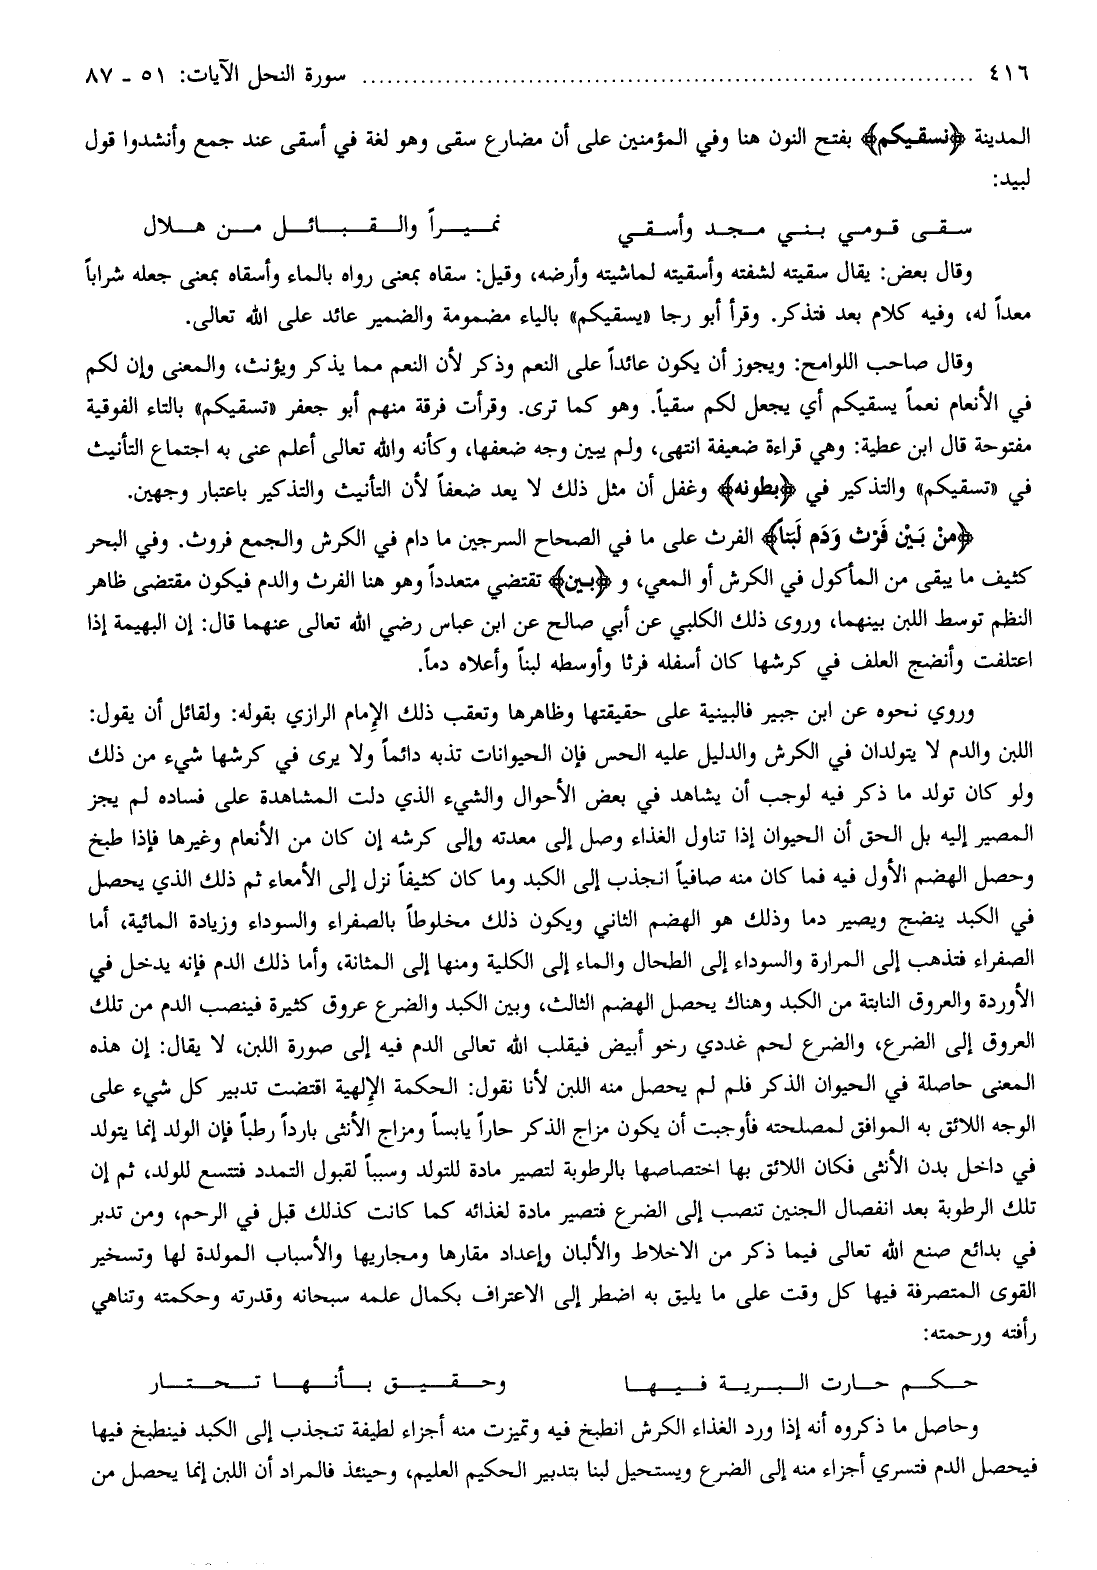 ٤١٦ ........................................................................... سورة النحل الآيات: ٥١ - ٨٧
المدينة ﴿نسقيكم﴾ بفتح النون هنا وفي المؤمنين على أن مضارع سقى وهو لغة في أسقى عند جمع وأنشدوا قول
لبيد:
سـقـى قـومـي بـنـي مـجـد وأسـقـي نمـيـراً والـقـبـائـل مـن هـلال
وقال بعض: يقال سقيته لشفته وأسقيته لماشيته وأرضه، وقيل: سقاه بمعنى رواه بالماء وأسقاه بمعنى جعله شراباً
معداً له، وفيه كلام بعد فتذكر. وقرأ أبو رجا «يسقيكم» بالياء مضمومة والضمير عائد على الله تعالى.
وقال صاحب اللوامح: ويجوز أن يكون عائداً على النعم وذكر لأن النعم مما يذكر ويؤنث، والمعنى وإن لكم
في الأنعام نعماً يسقيكم أي يجعل لكم سقياً. وهو كما ترى. وقرأت فرقة منهم أبو جعفر «تسقيكم» بالتاء الفوقية
مفتوحة قال ابن عطية: وهي قراءة ضعيفة انتهى، ولم يبين وجه ضعفها، وكأنه والله تعالى أعلم عنى به اجتماع التأنيث
في «تسقيكم» والتذكير في ﴿بطونه﴾ وغفل أن مثل ذلك لا يعد ضعفاً لأن التأنيث والتذكير باعتبار وجهين.
﴿منْ بَيْن فَرْث وَدَم لَبَناً﴾ الفرث على ما في الصحاح السرجين ما دام في الكرش والجمع فروث. وفي البحر
كثيف ما يبقى من المأكول في الكرش أو المعي، و ﴿بين﴾ تقتضي متعدداً وهو هنا الفرث والدم فيكون مقتضى ظاهر
النظم توسط اللبن بينهما، وروى ذلك الكلبي عن أبي صالح عن ابن عباس رضي الله تعالى عنهما قال: إن البهيمة إذا
اعتلفت وأنضج العلف في كرشها كان أسفله فرثا وأوسطه لبناً وأعلاه دماً.
وروي نحوه عن ابن جبير فالبينية على حقيقتها وظاهرها وتعقب ذلك الإمام الرازي بقوله: ولقائل أن يقول:
اللبن والدم لا يتولدان في الكرش والدليل عليه الحس فإن الحيوانات تذبه دائماً ولا يرى في كرشها شيء من ذلك
ولو كان تولد ما ذكر فيه لوجب أن يشاهد في بعض الأحوال والشيء الذي دلت المشاهدة على فساده لم يجز
المصير إليه بل الحق أن الحيوان إذا تناول الغذاء وصل إلى معدته وإلى كرشه إن كان من الأنعام وغيرها فإذا طبخ
وحصل الهضم الأول فيه فما كان منه صافياً انجذب إلى الكبد وما كان كثيفاً نزل إلى الأمعاء ثم ذلك الذي يحصل
في الكبد ينضج ويصير دما وذلك هو الهضم الثاني ويكون ذلك مخلوطاً بالصفراء والسوداء وزيادة المائية، أما
الصفراء فتذهب إلى المرارة والسوداء إلى الطحال والماء إلى الكلية ومنها إلى المثانة، وأما ذلك الدم فإنه يدخل في
الأوردة والعروق النابتة من الكبد وهناك يحصل الهضم الثالث، وبين الكبد والضرع عروق كثيرة فينصب الدم من تلك
العروق إلى الضرع، والضرع لحم غددي رخو أبيض فيقلب الله تعالى الدم فيه إلى صورة اللبن، لا يقال: إن هذه
المعنى حاصلة في الحيوان الذكر فلم لم يحصل منه اللبن لأنا نقول: الحكمة الإلهية اقتضت تدبير كل شيء على
الوجه اللائق به الموافق لمصلحته فأوجبت أن يكون مزاج الذكر حاراً يابساً ومزاج الأنثى بارداً رطباً فإن الولد إنما يتولد
في داخل بدن الأنثى فكان اللائق بها اختصاصها بالرطوبة لتصير مادة للتولد وسبباً لقبول التمدد فتتسع للولد، ثم إن
تلك الرطوبة بعد انفصال الجنين تنصب إلى الضرع فتصير مادة لغذائه كما كانت كذلك قبل في الرحم، ومن تدبر
في بدائع صنع الله تعالى فيما ذكر من الاخلاط والألبان وإعداد مقارها ومجاريها والأسباب المولدة لها وتسخير
القوى المتصرفة فيها كل وقت على ما يليق به اضطر إلى الاعتراف بكمال علمه سبحانه وقدرته وحكمته وتناهي
رأفته ورحمته:
حـكـم حـارت الـبـريـة فـيـهـا وحـقـيـق بـأنـهـا تـحـتـار
وحاصل ما ذكروه أنه إذا ورد الغذاء الكرش انطبخ فيه وتميزت منه أجزاء لطيفة تنجذب إلى الكبد فينطبخ فيها
فيحصل الدم فتسري أجزاء منه إلى الضرع ويستحيل لبنا بتدبير الحكيم العليم، وحينئذ فالمراد أن اللبن إنما يحصل من